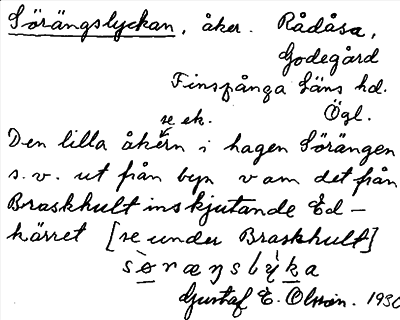 Sörängslyckan, åker. Rådåsa,
Godegård
Finspånga läns hd.
Ögl.
se ek.
Den lilla åkern i hagen Sörängen
s.v. ut från byn v om det från
Braskhult inskjutande Ed-
kärret [se under Braskhult]
Gustaf E. Olsson. 1930